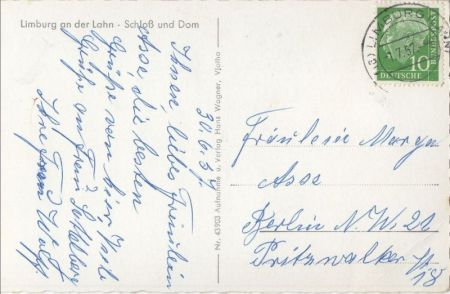 Limburg an der Lahn - Schloß und Dom
30.6.57.
Ihnen, liebes Fräulein
Asse, die besten
Grüße von hier. Viele
Grüße an Frau
Wolff
Nr. 43903 Aufnahme u. Verlag Hans Wagner, Vlotho
LIMBURG
1.7.57
DEUTSCHE
BUNDESPOST
10
Fräulein Marga
Asse
Berlin N.W. 21
Pritzwalker Str.
18